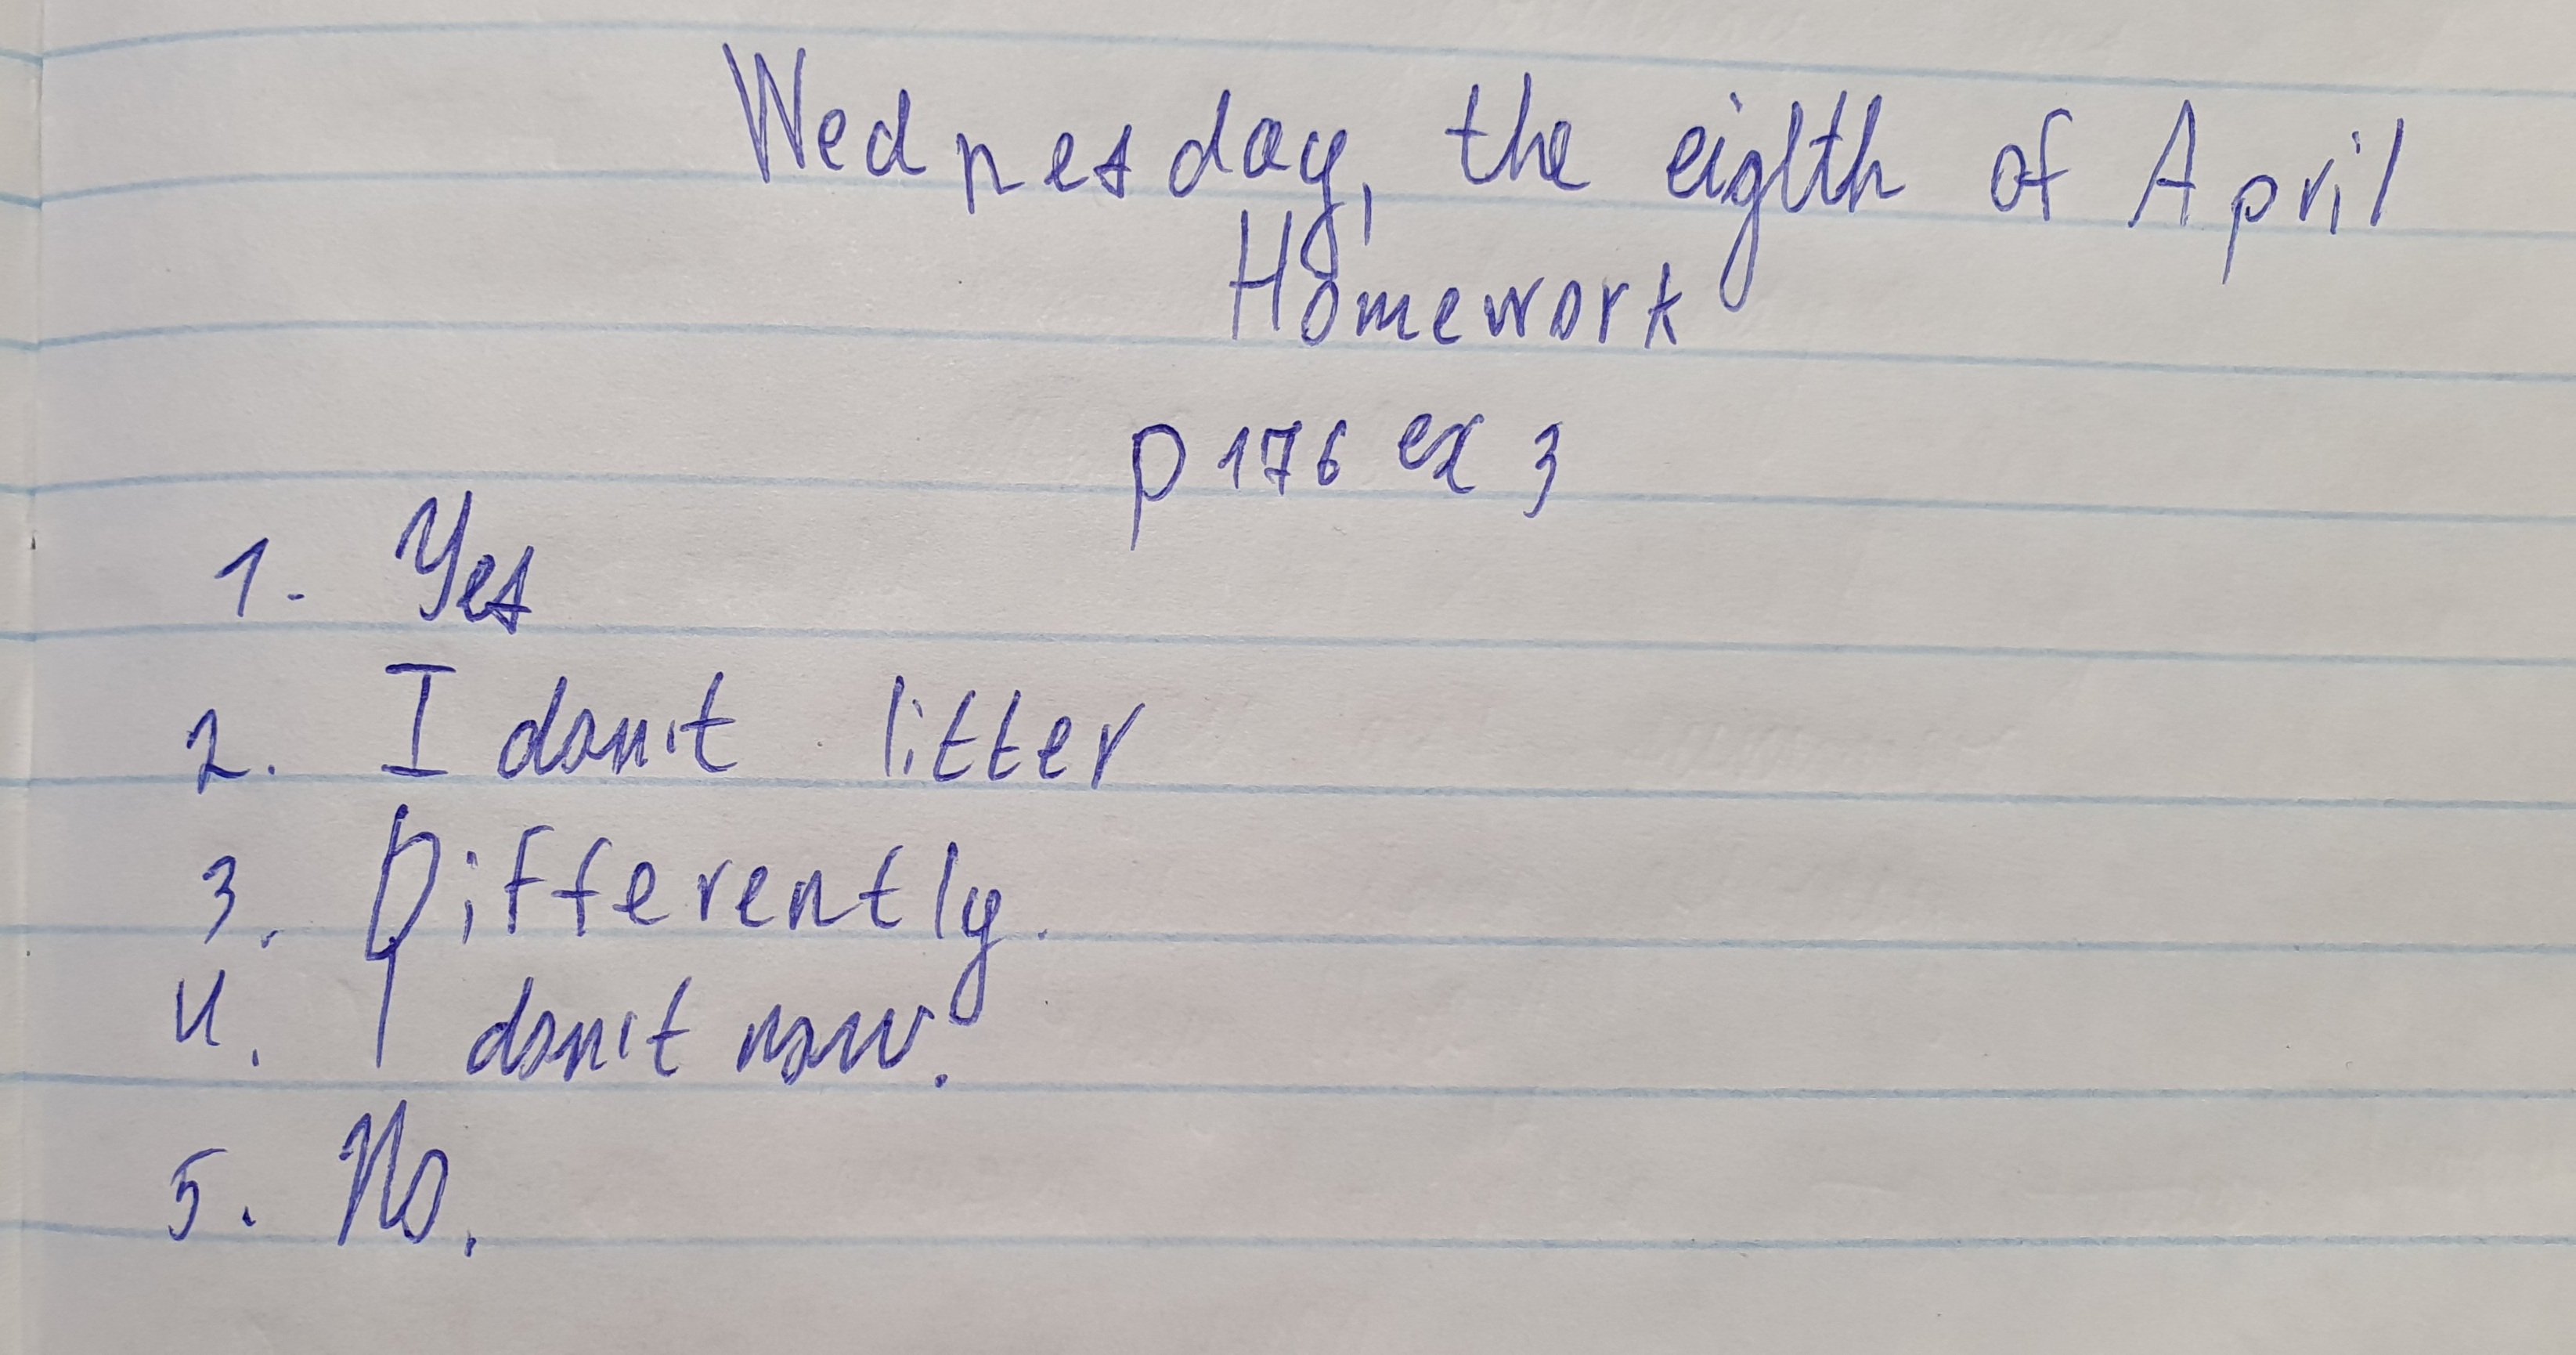 Wednesday, the eiglth of April
Homework
p 176 ex 3
1. Yes
2. I don't litter
3. Differently.
4. I don't now.
5. No.